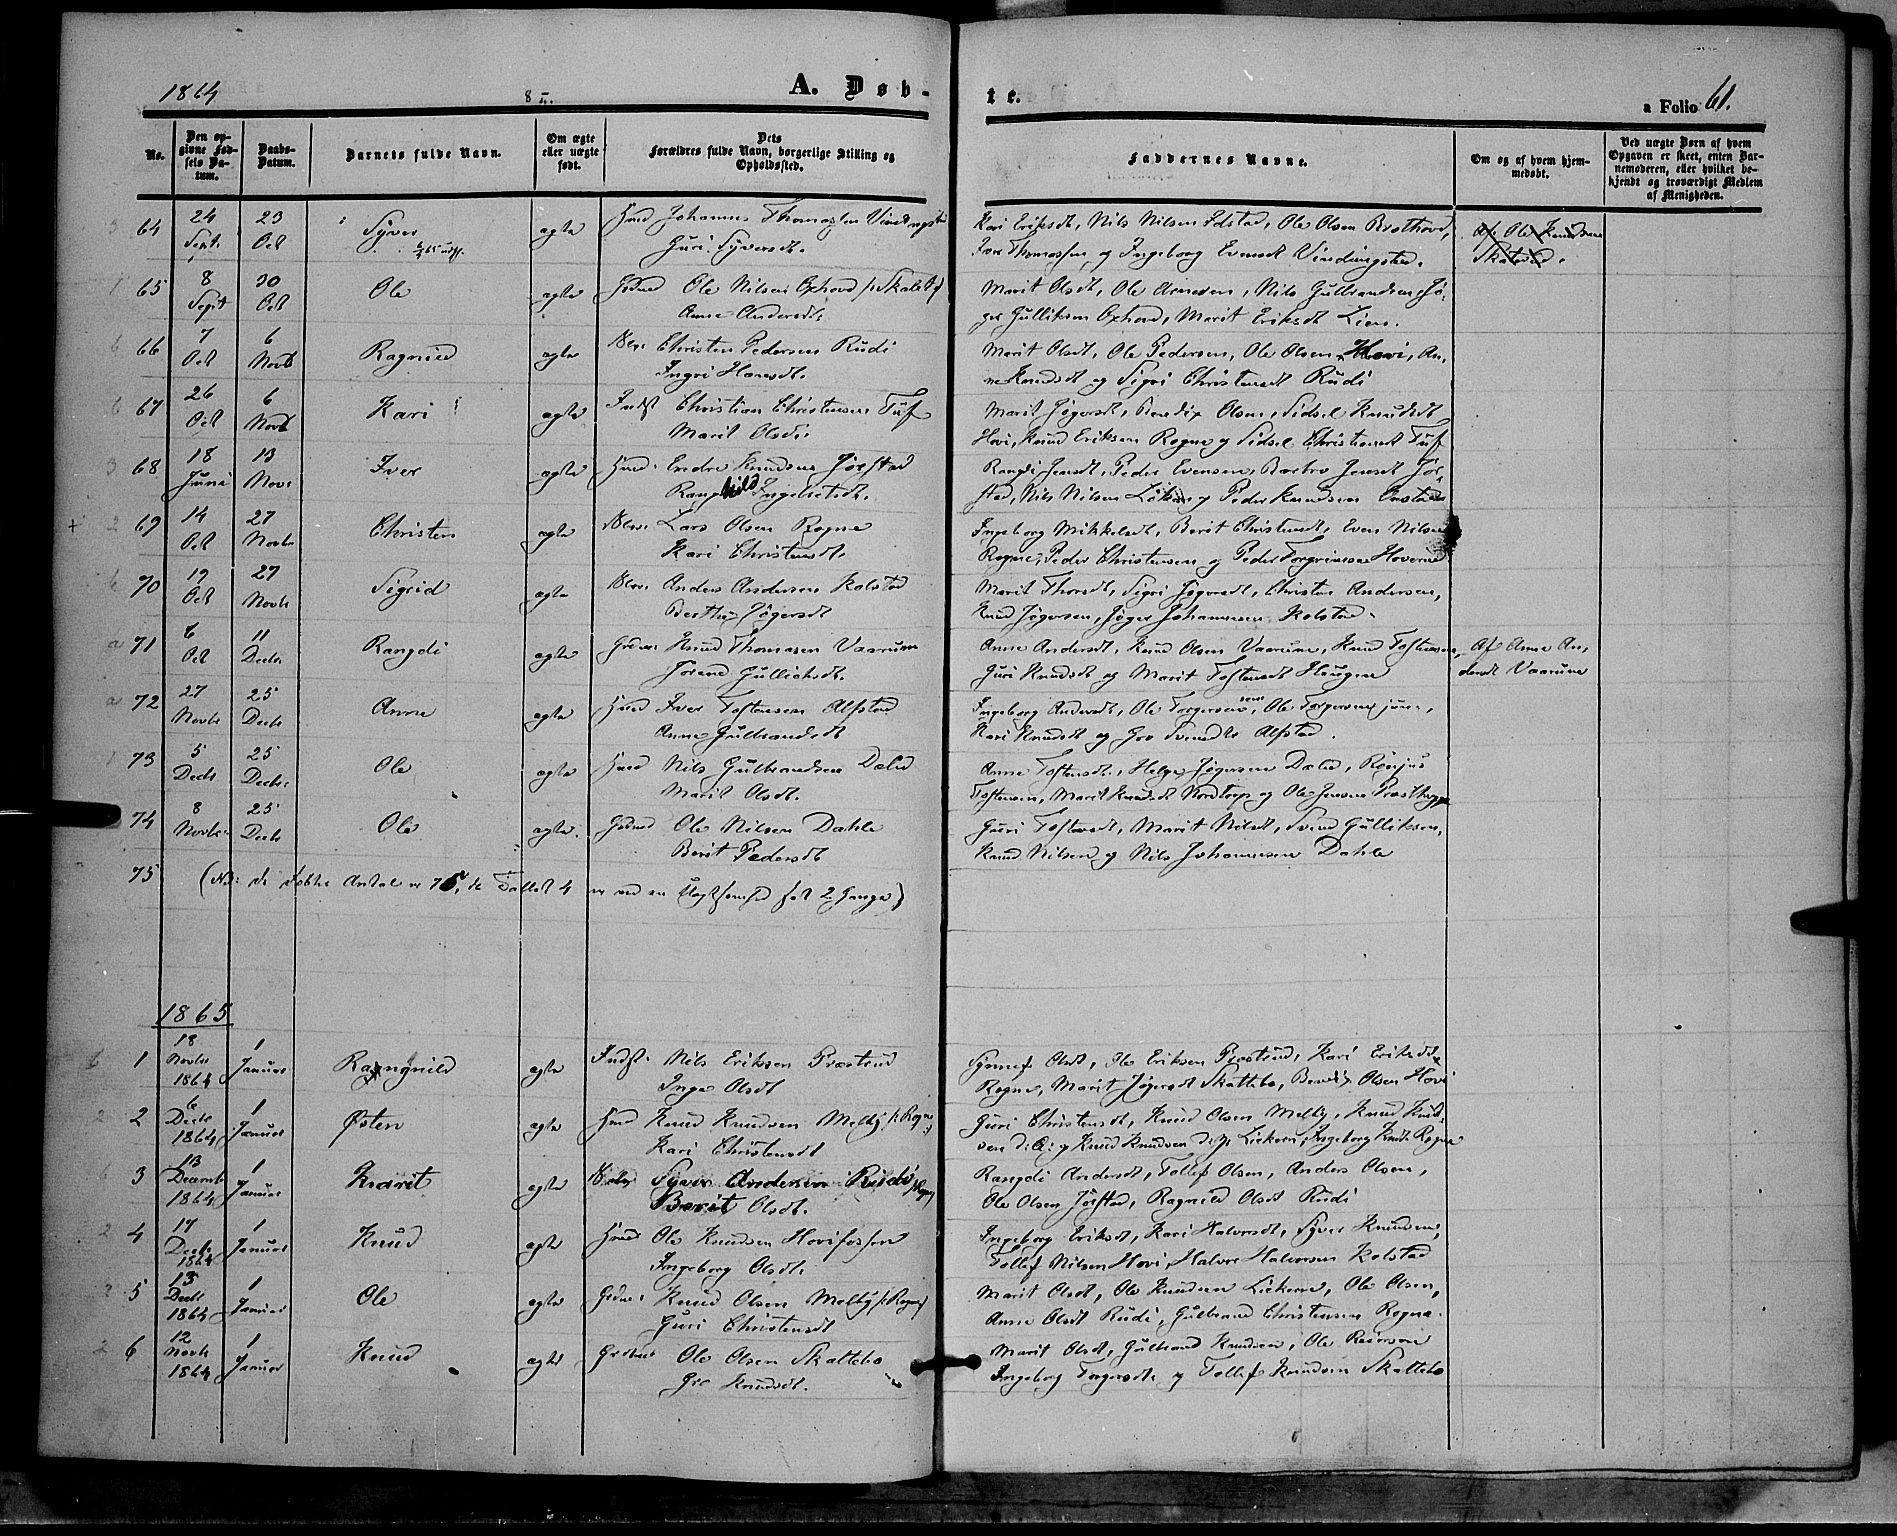 1864
8
A. Døb-
te.
a Folio 61.
No.
Den op-
givne Fød-
sels Da-
tum.
Daabs-
Datum.
Barnets fulde Navn.
Om ægte
eller uægte
født.
Dets
Forældres fulde Navn, borgerlige Stilling og
Opholdssted.
Faddernes Navne.
Om og af hvem hjem-
medøbt.
Ved uægte Børn af hvem
Opgaven er skeet, enten Bar-
nemoderen, eller hvilket be-
kjendt og troværdigt Medlem
af Menigheden.
64 24 Sept. 23 Oct Syver ægte Johannes Thomassen
Guri Syversdt.
Kari Eriksdt, Nils Nilsen Ildstad, Ole Olsen
Thomassen og Ingeborg Evensdt
Af Ole Knudsen
65 8 Sept 30 Oct Ole ægte Ole Nilsen Oxhovd
Anne Andersdt.
Marit Olsdt, Ole Arnesen, Nils Gulbrandsen
Gulliksen Oxhovd, Marit Eriksdt Lien.
66 7 Oct 6 Novb Ragnild ægte Christen Pedersen Rudi
Ingri Hansdt.
Marit Olsdt, Ole Pedersen, Ole Olsen Hovi, An-
ne Knudsdt og Sigri Christensdt Rudi
67 26 Oct 6 Novb Kari ægte Indst Christian Christensen Tuf
Marit Olsdt.
Marit Jøgersdt, Bendix Olsen, Sidsel Knudsdt
Hovi, Knud Eriksen Rogne og Sidsel Christiansdt Tuf
68 18 Juni 13 Novr Iver ægte Endre Knudsen Jørstad
Ranghild Ingebretsdt.
Rangdi Jensdt, Peder Evensen, Barbro Jensdt Jør-
stad, Nils Nilsen og Peder Knudsen
69 14 Oct 27 Novbr Christen ægte Lars Olsen Rogne
Kari Christensdt.
Ingeborg Mikkelsdt, Berit Christensdt, Even Nilsen
Rogne, Peder Christensen og Peder Torgrimsen
70 19 Oct 27 Novbr Sigrid ægte Anders Andersen Kolstad
Berthe Jøgersdt
Marit Thorsdt, Sigri Jøgersdt, Christen Andersen,
Knud Jøgersen, Jøger Johannesen Kolstad.
71 6 Oct 11 Decbr Rangdi ægte Knud Thomasen Vaarum
Jørend Gulliksdt.
Anne Andersdt, Knud Olsen Vaarum, Knud Tostensen,
Guri Knudsdt og Marit Tostensdt Haugen
Af Anne An-
dersdt Vaarum
72 27 Novbr 25 Decbr Anne ægte Iver Tostensen Alfstad
Anne Gulbrandsdt
Ingeborg Andersdt, Ole Torgersen sen, Ole Torgersen jun,
Kari Knudsdt og Gro Svendsdt Alfstad.
73 5 Decbr 25 Decbr Ole ægte Nils Gulbrandsen
Marit Olsdt.
Anne Tostensdt, Helge Jøgersen
Tostensen, Marit Knudsdt Nordtorp og Ole Jensen
74 8 Novbr 25 Decbr Ole ægte Ole Nilsen Dahle
Berit Pedersdt
Guri Tostensdt, Marit Nilsdt, Svend Gulliksen,
Knud Nilsen og Nils Johannesen Dahle
75 (NB: de døbtes Antal er 75, da Tallet 4 er ved en Uagtsomhed sat 2 Gange)
1865
1 18 Novbr 1864 1 Januar Rangnild ægte Indst. Nils Eriksen Præstrud
Inge Olsdt
Synnef Olsdt, Ole Eriksen Præstrud, Kari Eriksdt
Rogne, Marit Jøgersdt Skattebo, Bendix Olsen Hovi
2 6 Decbr 1864 1 Januar Østen ægte Knud Knudsen Melby
Kari Christensdt
Guri Christensdt, Knud Olsen Melby, Knud Knud-
sen og Knud Knudsen Ingeborg Rogne
3 13 Decemb 1864 1 Januar Marit ægte Syver Andersen Rudi
Berit Olsdt.
Rangdi Andersdt, Tollef Olsen, Anders Olsen,
Ole Olsen Jørstad, Ragnild Olsdt Rudi
4 17 Decbr 1864 1 Januar Knud ægte Ole Knudsen Hovifossen
Ingeborg Olsdt.
Ingeborg Eriksdt, Kari Halvorsdt, Syver Knudsen,
Tollef Nilsen Hovi, Halvor Halvorsen Kolstad
5 13 Decbr 1864 1 Januar Ole ægte Knud Olsen Melby
Guri Christensdt
Marit Olsdt, Ole Knudsen, Ole Olsen,
Anne Olsdt Rudi, Gulbrand Christensen Rogne.
6 12 Novbr 1864 1 Januar Knud ægte Ole Olsen Skattebo
Gro Knudsdt.
Marit Olsdt, Gulbrand Knudsen, Ole
Ingeborg Torgersdt. og Tollef Knudsen Skattebo